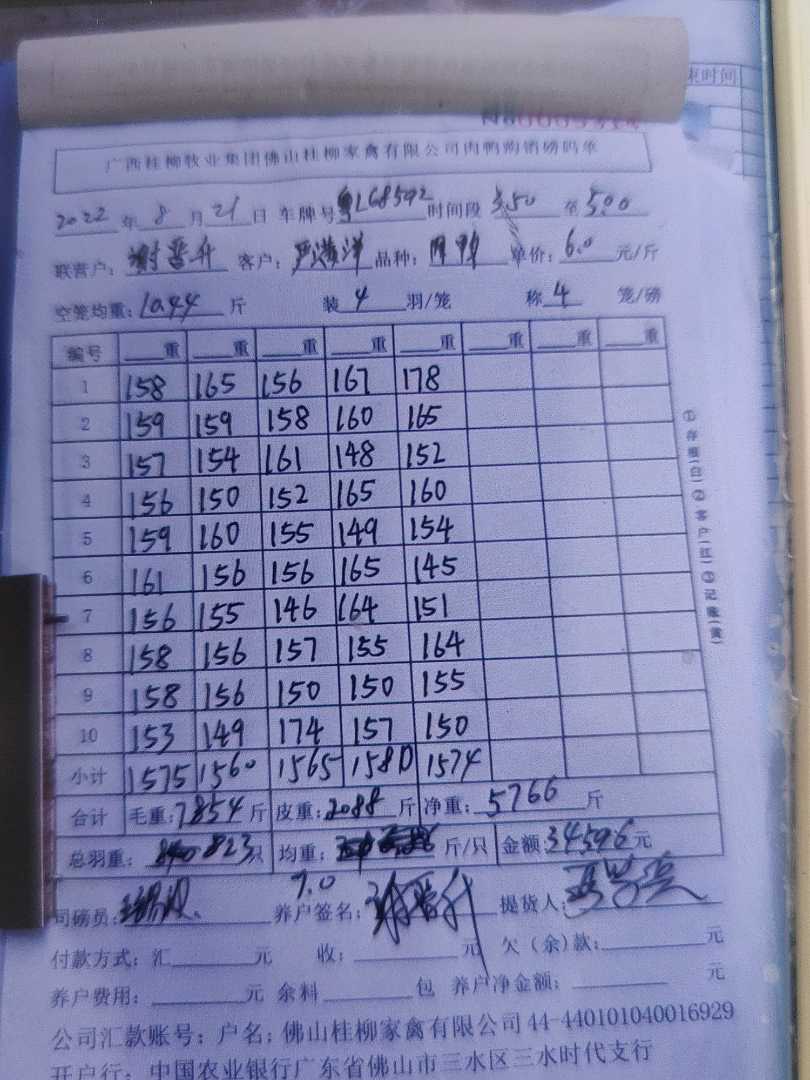 束时间
广西桂柳牧业集团佛山桂柳家禽有限公司肉鸭购销磅码单
2022年8月21日 车牌号粤L68592时间段3.50至5.00
联营户:谢晋升 客户:严洪洋 品种: 单价:6.0元/斤
空笼均重:10.44斤 装4羽/笼 称4笼/磅
编号 重 重 重 重 重 重 重 重
1 158 165 156 167 178
2 159 159 158 160 165
3 157 154 161 148 152
4 156 150 152 165 160
5 159 160 155 149 154
6 161 156 156 165 145
7 156 155 146 164 151
8 158 156 157 155 164
9 158 156 150 150 155
10 153 149 174 157 150
小计 1575 1560 1565 1580 1574
合计 毛重:7854斤 皮重:2088斤 净重:5766斤
总羽重:823只 均重: 斤/只 金额:34596元
7.0
司磅员: 养户签名:谢晋升 提货人:
付款方式:汇 元 收: 元 欠(余)款: 元
养户费用: 元 余料 包 养户净金额: 元
公司汇款账号:户名:佛山桂柳家禽有限公司44-440101040016929
开户行:中国农业银行广东省佛山市三水区三水时代支行
①存根(白)②客户(红)③记账(黄)